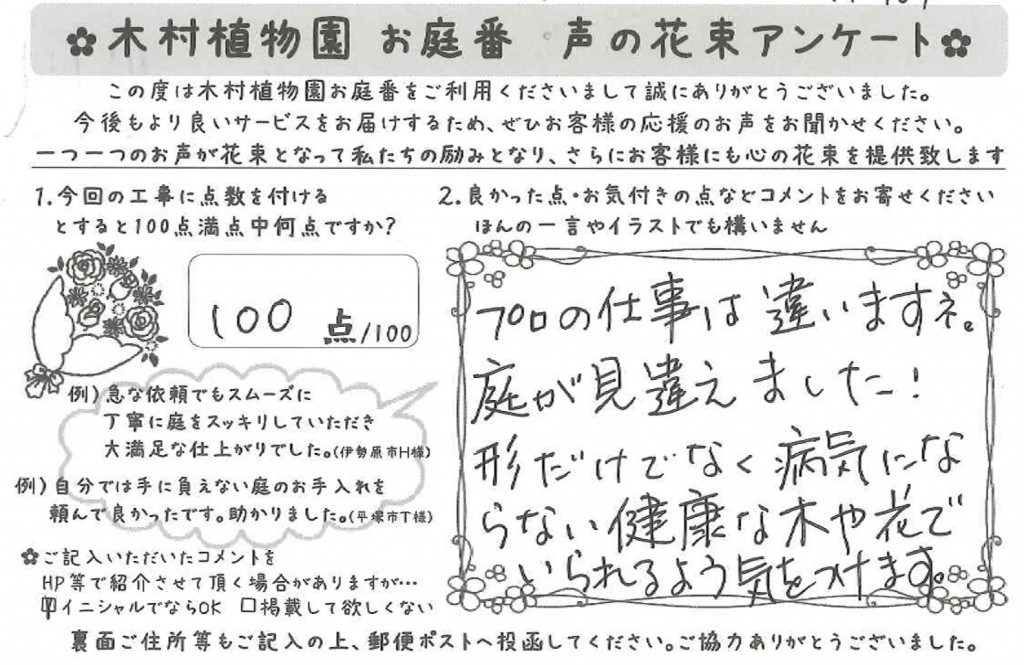 ✿木村植物園 お庭番 声の花束アンケート✿
この度は木村植物園お庭番をご利用くださいまして誠にありがとうございました。
今後もより良いサービスをお届けするため、ぜひお客様の応援のお声をお聞かせください。
一つ一つのお声が花束となって私たちの励みとなり、さらにお客様にも心の花束を提供致します
1.今回の工事に点数を付ける
とすると100点満点中何点ですか?
100 点/100
例)急な依頼でもスムーズに
丁寧に庭をスッキリしていただき
大満足な仕上がりでした。(伊勢原市H様)
例)自分では手に負えない庭のお手入れを
頼んで良かったです。助かりました。(平塚市T様)
✿ご記入いただいたコメントを
HP等で紹介させて頂く場合がありますが…
☑イニシャルでならOK □掲載して欲しくない
2.良かった点・お気付きの点などコメントをお寄せください
ほんの一言やイラストでも構いません
プロの仕事は違いますネ。
庭が見違えました!
形だけでなく病気にな
らない健康な木や花で
いられるよう気をつけます。
裏面ご住所等もご記入の上、郵便ポストへ投函してください。ご協力ありがとうございました。